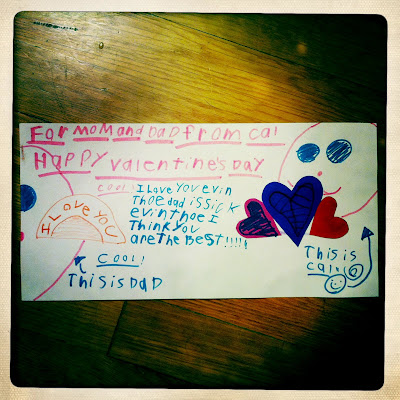 For mom and Dad from Cal
Happy Valentine's Day
cool!
I Love You evin
thoe dad is sick
evin thoe I
think You
are the Best!!!!!
I Love You
cool!
This is Dad
This is
cal.